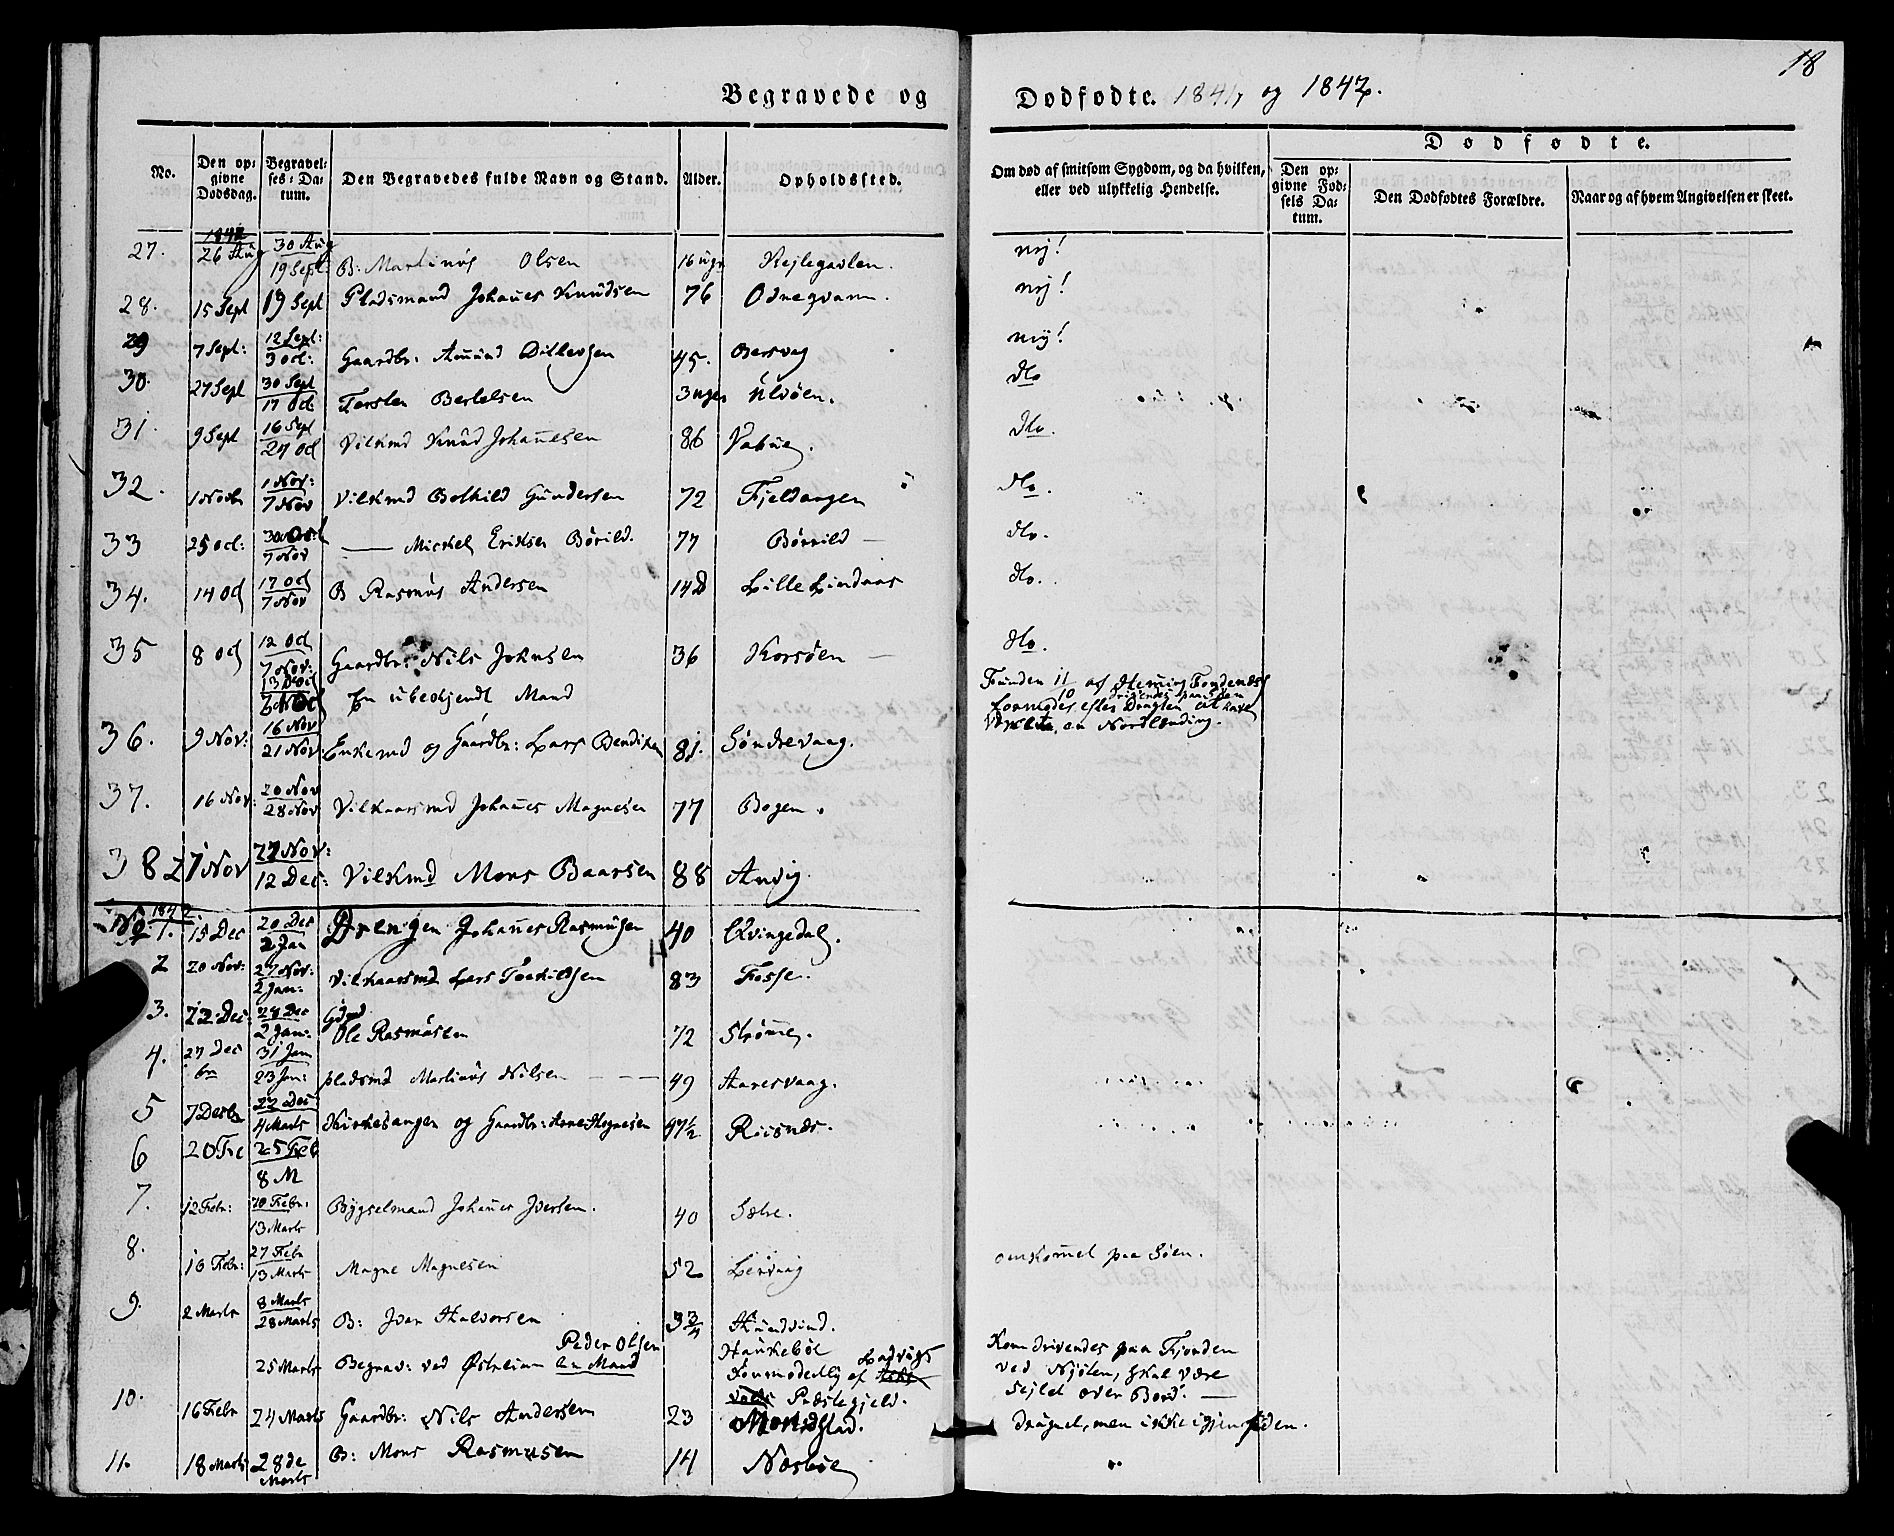 18
Begravede og Dødfødte. 1841 og 1842.
No.
Den opgivne Dødsdag.
Begravelses-Datum.
Den Begravedes fulde Navn og Stand.
Alder.
Opholdssted.
Om død af smitsom Sygdom, og da hvilken, eller ved ulykkelig Hendelse.
Dødfødte.
Den opgivne Fødsels Datum.
Den Dødfødtes Forældre.
Naar og af hvem Angivelsen er skeet.
27. 26 Aug 30 Aug 19 Sept: B: Martinus Olsen 16 ugr nej!
28. 15 Sept 19 Sept Pladsmand Johanes Knudsen 76 Odnegvam. nej!
29 7 Sept: 12 Sept: 3 Oct: Gaardbr: Amund Ditlevsen 45. nej!
30. 27 Sept 30 Sept 17 Oct Torsten Bertelsen 3 uger Ulvøen. do
31. 9 Sept 16 Sept 24 Oct Vilkmd Knud Johanesen 86 do.
32. 1 Novbr 1 Nov: 7 Nov Vilkmd Bothild Gundersen 72 Fjeldangen do.
33 25 Oct: 30 Oct 7 Nov — Mickel Eriksen Børild. 77 Børrild — do.
34. 14 Oct 17 Oct 7 Nov B Rasmus Andersen 14 D Lille Lindaas do.
35 8 Oct 12 Oct 7 Nov: Gaardbr: Nils Johnsen 36 Korsøen — do.
En ubekjendt Mand Funden 11/10 af Henning Fondenes drivende paa Søen formodes efter Dragten at have været en Nordlending.
36. 9 Nov: 16 Nov 21 Nov: Enkemd og Gaardbr: Lars Bendiksen 81. Søndrevaag.
37. 16 Nov: 20 Nov 28 Nov Vilkaarsmd Johanes Magnesen 77 Bogen.
38 27 Nov 27 Nov: 12 Dec: Vilkmd Mons Baarsen 88 Anvig
1842
No 1. 15 Dec 20 Dec 2 Jan Drengen Johanes Rasmusen 40 Qvingedal.
2 20 Nov: 27 Nov: 2 Jan: Vilkaarsmd Lars Torkildsen 83 Fosse.
3. 22 Dec: 28 Dec 2 Jan: Gdmd Ole Rasmusen 72 Strømme.
4. 27 Decbr 31 Jan 23 Jan: pladsmd Martinus Nilsen — 49 Aaresvaag.
5 7 Decbr 22 Dec: 4 Marts Kirkesanger og Gaardbr: Arne Mognesen 47½ Riisnæs.
6 20 Fe 25 Feb 8 M
7. 12 Febr: 20 Febr: 13 Marts Bygselmand Johanes Iversen. 40 Sætre.
8. 10 Febr: 27 Febr 13 Marts Magne Magnesen 52 Leirvaag omkommet paa Søen.
9. 2 Marts 8 Marts 28 Marts B: Iver Halvorsen 3¾ Hundvind.
25 Marts Begrav: ved Østreim Peder Olsen en Mand Haukebøe Formodentlig af Ladvigs Præstegjeld. Kom drivendes paa Fjorden ved Njøten, skal være sejlet over Bord. —
10. 16 Febr 24 Marts Gaardbr: Nils Andersen 23 druknet, men ikke igjenfunden.
11. 18 Marts 28de Marts B: Mons Rasmusen 14 Næsbøe